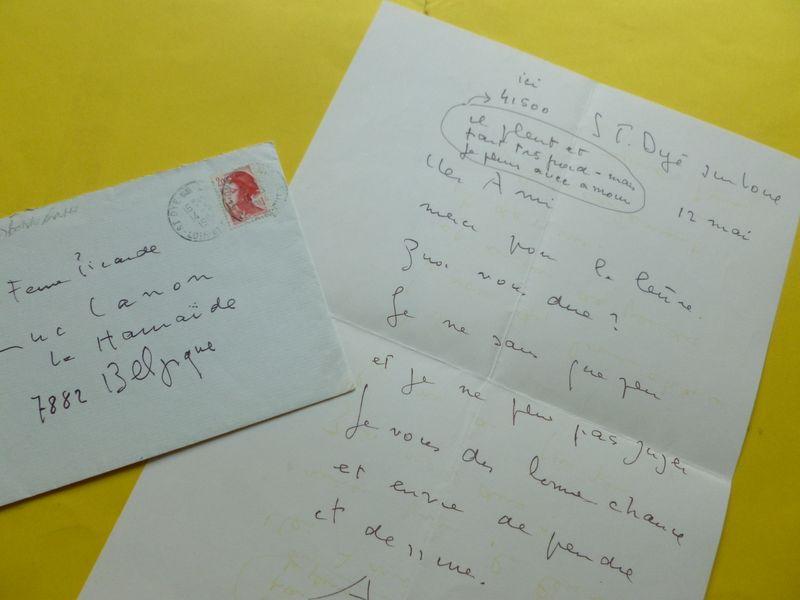 Luc Canon
La Hamaïde
7882 Belgique
2,20
ici
41500
il pleut et
fait très froid – mais
je peins avec amour
ST. Dyé sur Loire
12 mai
cher Ami
merci pour la lettre.
Quoi vous dire ?
Je ne sais que peu
et je ne peux pas juger
Je vous dis bonne chance
et envie de peindre
et dessiner.